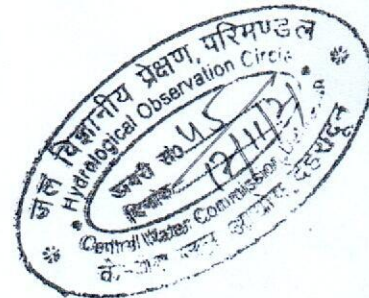 जल विज्ञानीय प्रेक्षण परिमण्डल
Hydrological Observation Circle
डायरी सं० 45
दिनांक
Central Water Commission
केन्द्रीय जल आयोग, देहरादून